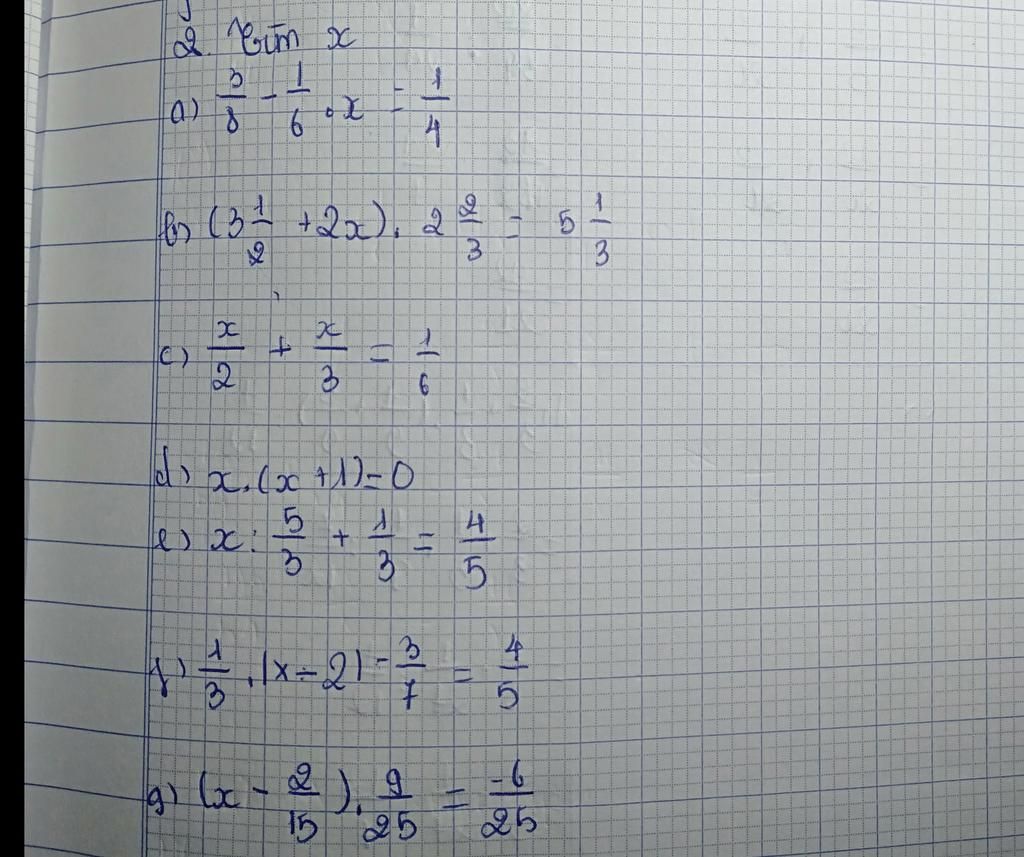 2. Tìm x
a) 3/8 - 1/6 . x = 1/4
b) (3 1/2 + 2x) . 2 2/3 = 5 1/3
c) x/2 + x/3 = 1/6
d) x.(x+1)=0
e) x : 5/3 + 1/3 = 4/5
f) 1/3 . |x - 2| - 3/7 = 4/5
g) (x - 2/15) . 9/25 = -6/25